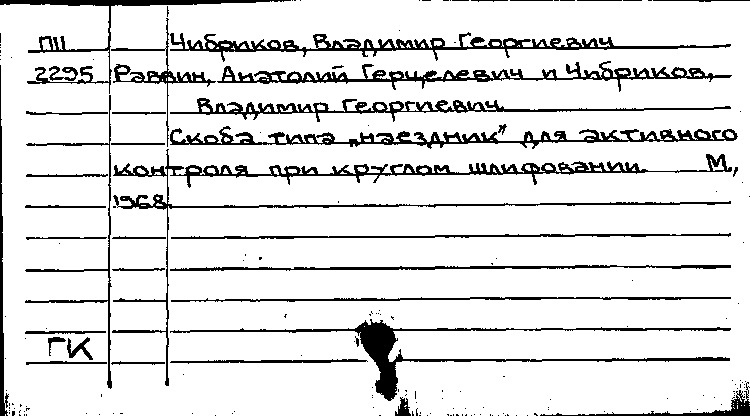 ПШ Чибриков, Владимир Георгиевич
2295 Раввин, Анатолий Герцелевич и Чибриков,
Владимир Георгиевич.
Скоба типа „наездник" для активного
контроля при круглом шлифовании. М.,
1968.
ГК